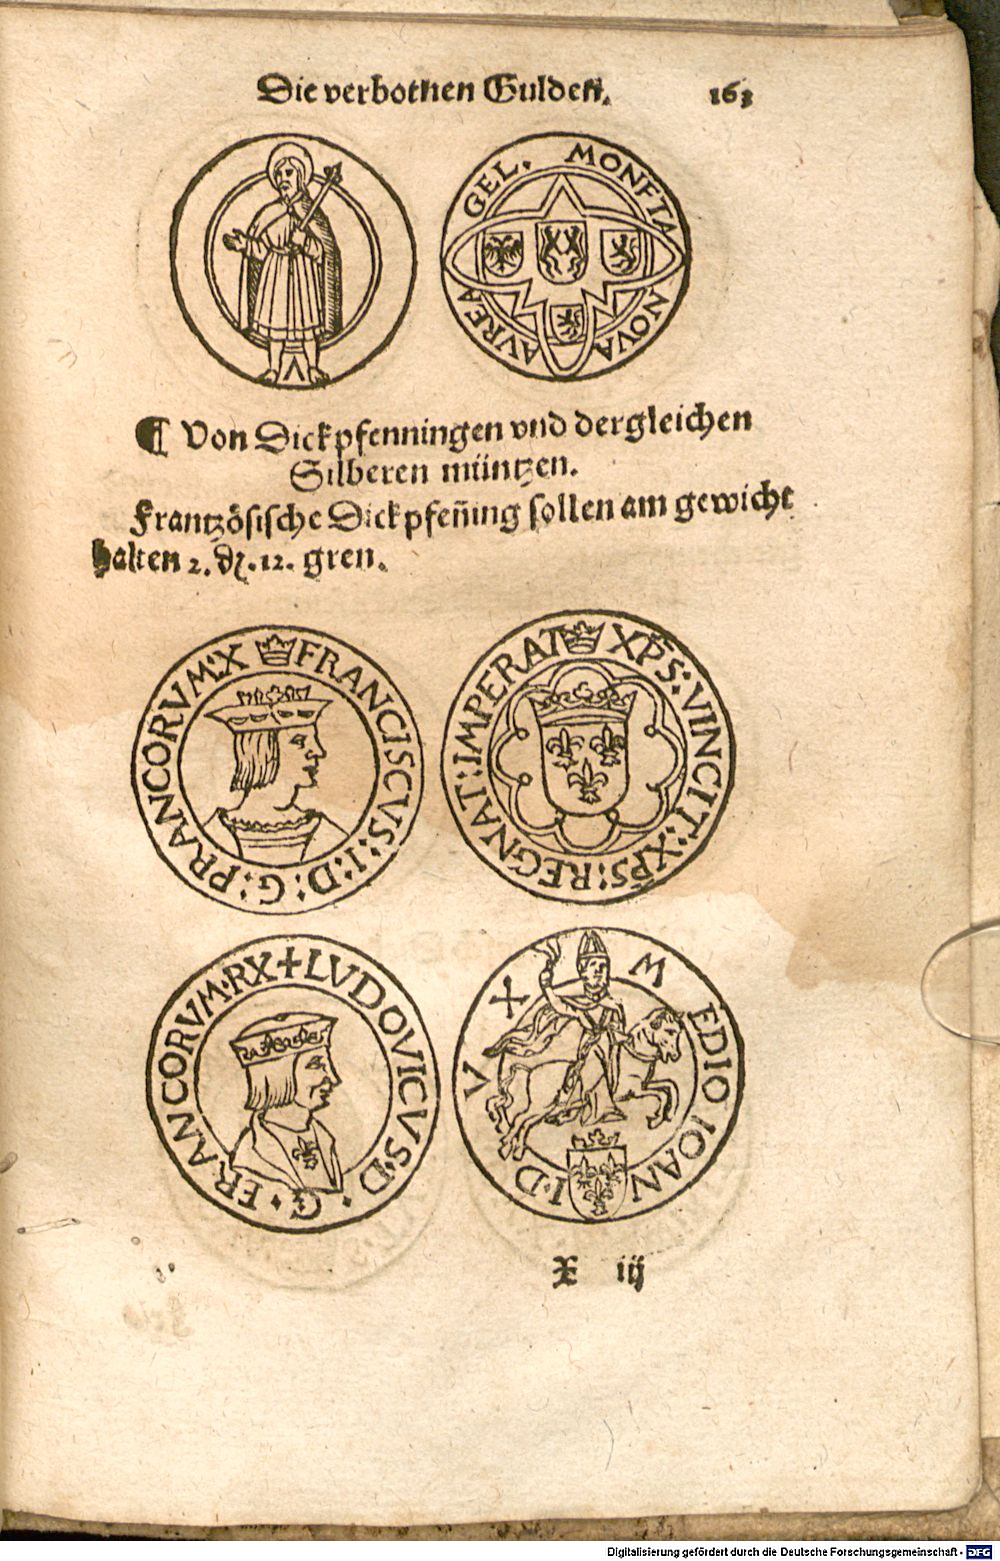 Die verbotnen Gulden. 163
GEL. MONETA NOVA AVREA
¶ Von Dickpfenningen vnd dergleichen
Silberen müntzen.
Frantzösische Dickpfen̄ing sollen am gewicht
halten 2. ₰. 12. gren.
FRANCISCVS:I:D:G:PRANCORVM:X
XP̄S:VINCIT:XP̄S:REGNAT:IMPERAT
+LVDOVICVS·D·G·FRANCORVM·RX
MEDIOIOANI·D V X
X iij
Digitalisierung gefördert durch die Deutsche Forschungsgemeinschaft - DFG